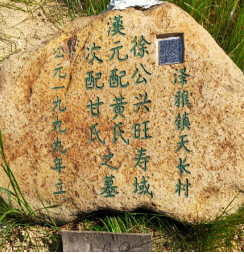 泽雅镇天长村
徐公兴旺寿域
漢元配黄氏
次配甘氏之墓
公元一九九九年立